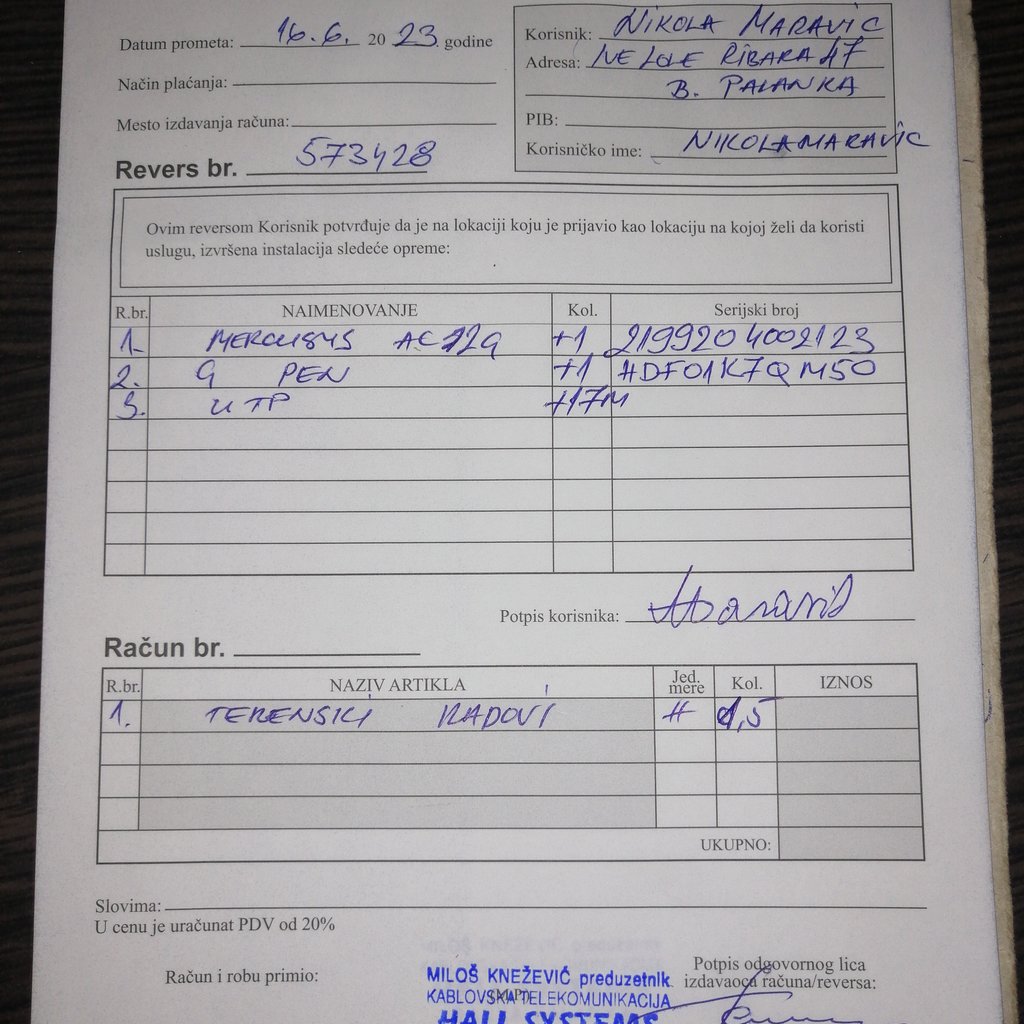 Datum prometa: 16.6. 2023 godine
Način plaćanja:
Mesto izdavanja računa:
Revers br. 573428
Korisnik: NIKOLA MARAVIC
Adresa: IVE LOLE RIBARA 47
B. PALANKA
PIB:
Korisničko ime: NIKOLAMARAVIC
Ovim reversom Korisnik potvrđuje da je na lokaciji koju je prijavio kao lokaciju na kojoj želi da koristi
uslugu, izvršena instalacija sledeće opreme:
R.br. NAIMENOVANJE Kol. Serijski broj
1. MERCUSYS AC12G +1 2199204002123
2. G PEN +1 HDF01K7QM50
3. UTP +17M
Potpis korisnika: Maravić
Račun br.
R.br. NAZIV ARTIKLA Jed. mere Kol. IZNOS
1. TERENSKI RADOVI H 1,5
UKUPNO:
Slovima:
U cenu je uračunat PDV od 20%
Račun i robu primio:
(M.P.)
MILOŠ KNEŽEVIĆ preduzetnik
KABLOVSKA TELEKOMUNIKACIJA
HALL SYSTEMS
Potpis odgovornog lica
izdavaoca računa/reversa: